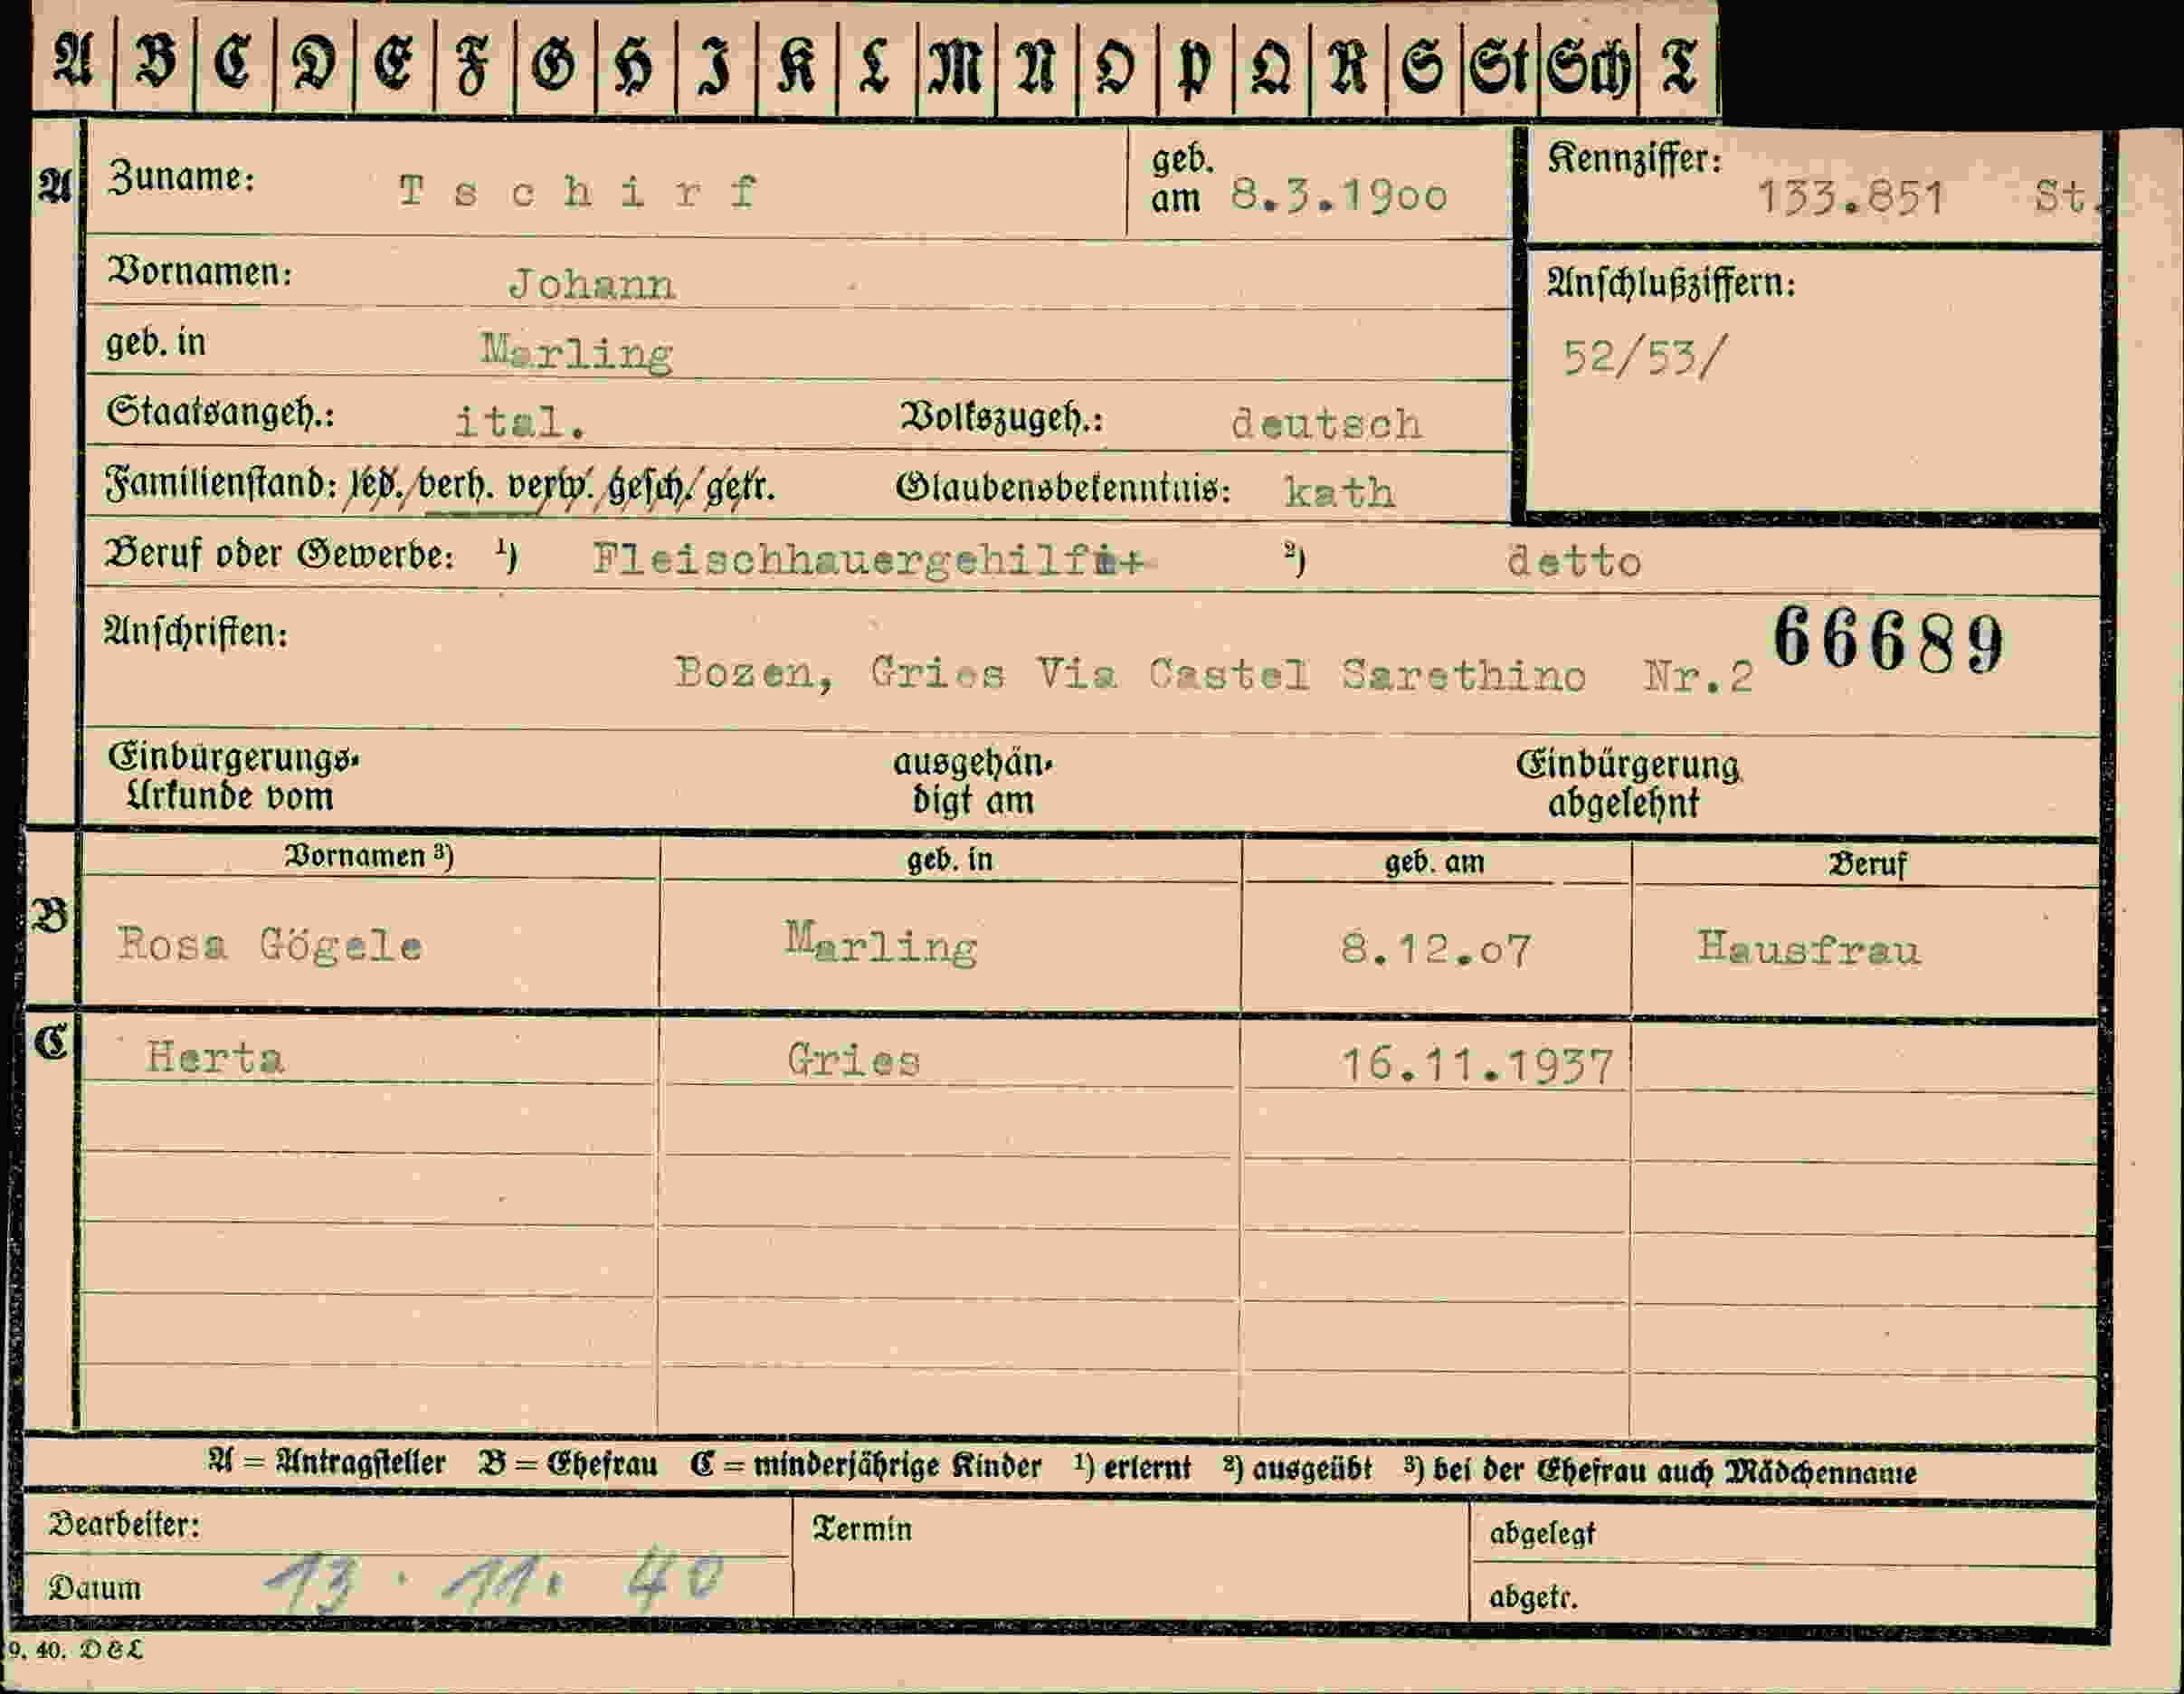 A B C D E F G H I K L M N O P Q R S St Sch T
A Zuname: Tschirf geb. am 8.3.1900 Kennziffer: 133.851 St.
Vornamen: Johann Anschlußziffern:
geb. in Marling 52/53/
Staatsangeh.: ital. Volkszugeh.: deutsch
Familienstand: led. verh. verw. gesch. getr. Glaubensbekenntnis: kath
Beruf oder Gewerbe: 1) Fleischhauergehilf 2) detto
Anschriften: 66689
Bozen, Gries Via Castel Sarethino Nr.2
Einbürgerungs- ausgehän- Einbürgerung
Urkunde vom digt am abgelehnt
Vornamen 3) geb. in geb. am Beruf
B Rosa Gögele Marling 8.12.07 Hausfrau
C Herta Gries 16.11.1937
A = Antragsteller B = Ehefrau C = minderjährige Kinder 1) erlernt 2) ausgeübt 3) bei der Ehefrau auch Mädchenname
Bearbeiter: Termin abgelegt
Datum 13. 11. 40 abgetr.
9. 40. D&L